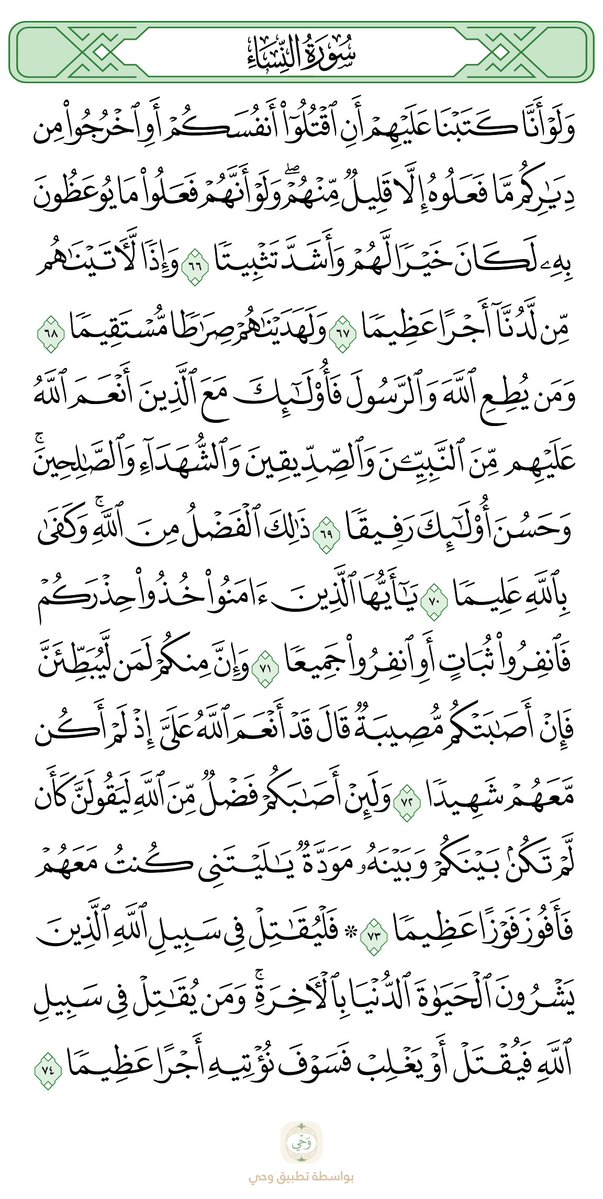 سُورَةُ النِّسَاءِ
وَلَوْ أَنَّا كَتَبْنَا عَلَيْهِمْ أَنِ ٱقْتُلُوٓا۟ أَنفُسَكُمْ أَوِ ٱخْرُجُوا۟ مِن
دِيَـٰرِكُم مَّا فَعَلُوهُ إِلَّا قَلِيلٌ مِّنْهُمْ ۖ وَلَوْ أَنَّهُمْ فَعَلُوا۟ مَا يُوعَظُونَ
بِهِۦ لَكَانَ خَيْرًا لَّهُمْ وَأَشَدَّ تَثْبِيتًا ٦٦ وَإِذًا لَّـَٔاتَيْنَـٰهُم
مِّن لَّدُنَّآ أَجْرًا عَظِيمًا ٦٧ وَلَهَدَيْنَـٰهُمْ صِرَٰطًا مُّسْتَقِيمًا ٦٨
وَمَن يُطِعِ ٱللَّهَ وَٱلرَّسُولَ فَأُو۟لَـٰٓئِكَ مَعَ ٱلَّذِينَ أَنْعَمَ ٱللَّهُ
عَلَيْهِم مِّنَ ٱلنَّبِيِّـۧنَ وَٱلصِّدِّيقِينَ وَٱلشُّهَدَآءِ وَٱلصَّـٰلِحِينَ ۚ
وَحَسُنَ أُو۟لَـٰٓئِكَ رَفِيقًا ٦٩ ذَٰلِكَ ٱلْفَضْلُ مِنَ ٱللَّهِ ۚ وَكَفَىٰ
بِٱللَّهِ عَلِيمًا ٧٠ يَـٰٓأَيُّهَا ٱلَّذِينَ ءَامَنُوا۟ خُذُوا۟ حِذْرَكُمْ
فَٱنفِرُوا۟ ثُبَاتٍ أَوِ ٱنفِرُوا۟ جَمِيعًا ٧١ وَإِنَّ مِنكُمْ لَمَن لَّيُبَطِّئَنَّ
فَإِنْ أَصَـٰبَتْكُم مُّصِيبَةٌ قَالَ قَدْ أَنْعَمَ ٱللَّهُ عَلَىَّ إِذْ لَمْ أَكُن
مَّعَهُمْ شَهِيدًا ٧٢ وَلَئِنْ أَصَـٰبَكُمْ فَضْلٌ مِّنَ ٱللَّهِ لَيَقُولَنَّ كَأَن
لَّمْ تَكُنۢ بَيْنَكُمْ وَبَيْنَهُۥ مَوَدَّةٌ يَـٰلَيْتَنِى كُنتُ مَعَهُمْ
فَأَفُوزَ فَوْزًا عَظِيمًا ٧٣ ۞ فَلْيُقَـٰتِلْ فِى سَبِيلِ ٱللَّهِ ٱلَّذِينَ
يَشْرُونَ ٱلْحَيَوٰةَ ٱلدُّنْيَا بِٱلْـَٔاخِرَةِ ۚ وَمَن يُقَـٰتِلْ فِى سَبِيلِ
ٱللَّهِ فَيُقْتَلْ أَوْ يَغْلِبْ فَسَوْفَ نُؤْتِيهِ أَجْرًا عَظِيمًا ٧٤
وَحْي
بواسطة تطبيق وحي